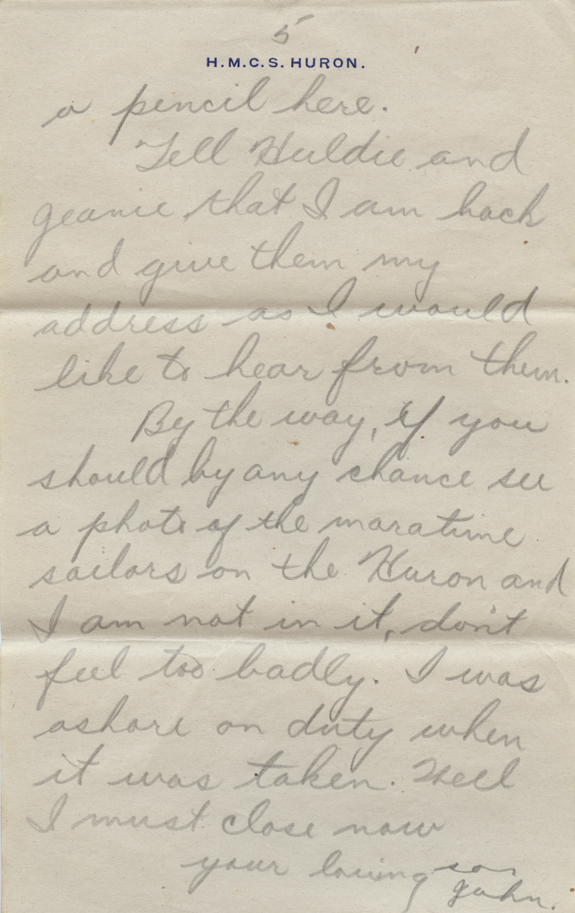 5
H.M.C.S. HURON.
a pencil here.
Tell Huldie and
geanie that I am back
and give them my
address as I would
like to hear from them.
By the way, if you
should by any chance see
a photo of the maratime
sailors on the Huron and
I am not in it, don't
feel too badly. I was
ashore on duty when
it was taken. Well
I must close now
your loving son
John.